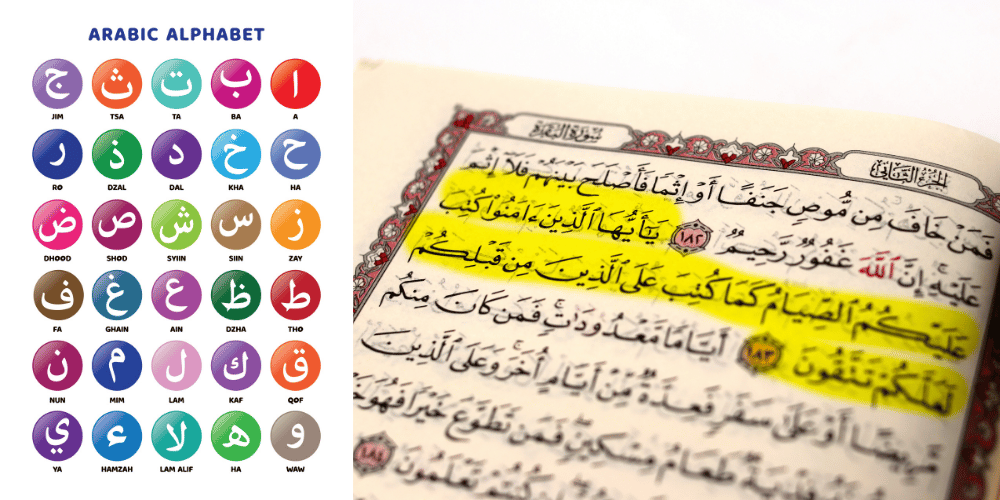 ARABIC ALPHABET
ا ب ت ث ج
JIM TSA TA BA A
ح خ د ذ ر
RO DZAL DAL KHA HA
ز س ش ص ض
DHOOD SHOD SYIIN SIIN ZAY
ط ظ ع غ ف
FA GHAIN AIN DZHA THO
ق ك ل م ن
NUN MIM LAM KAF QOF
و ه لا ء ي
YA HAMZAH LAM ALIF HA WAW
الجزء الثاني
سورة البقرة
فَمَنْ خَافَ مِن مُّوصٍ جَنَفًا أَوْ إِثْمًا فَأَصْلَحَ بَيْنَهُمْ فَلَآ إِثْمَ
عَلَيْهِ إِنَّ ٱللَّهَ غَفُورٌ رَّحِيمٌ ١٨٢ يَٰٓأَيُّهَا ٱلَّذِينَ ءَامَنُوا۟ كُتِبَ
عَلَيْكُمُ ٱلصِّيَامُ كَمَا كُتِبَ عَلَى ٱلَّذِينَ مِن قَبْلِكُمْ
لَعَلَّكُمْ تَتَّقُونَ ١٨٣ أَيَّامًا مَّعْدُودَٰتٍ ۚ فَمَن كَانَ مِنكُم
مَّرِيضًا أَوْ عَلَىٰ سَفَرٍ فَعِدَّةٌ مِّنْ أَيَّامٍ أُخَرَ ۚ وَعَلَى ٱلَّذِينَ
طَعَامُ مِسْكِينٍ ۖ فَمَن تَطَوَّعَ خَيْرًا فَهُوَ
كُنتُمْ تَعْلَمُونَ ١٨٤